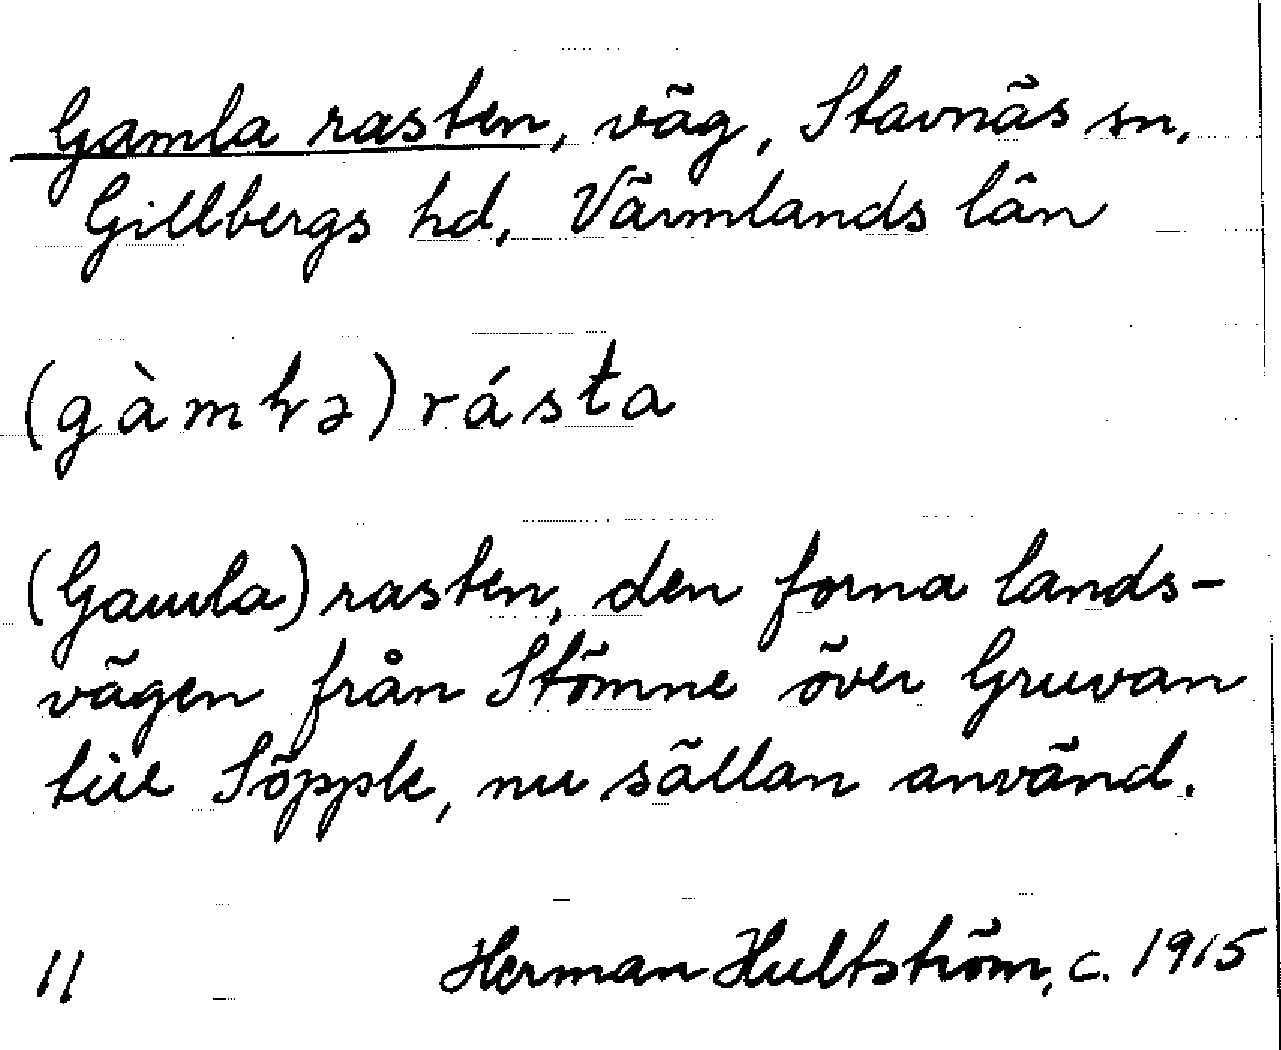 Gamla rasten, väg, Stavnäs sn,
Gillbergs hd, Värmlands län
(gàmɽə) rásta
(Gamla) rasten, den forna lands-
vägen från Stömne över Gruvan
till Söpple, nu sällan använd.
11 Herman Hultström, c. 1915